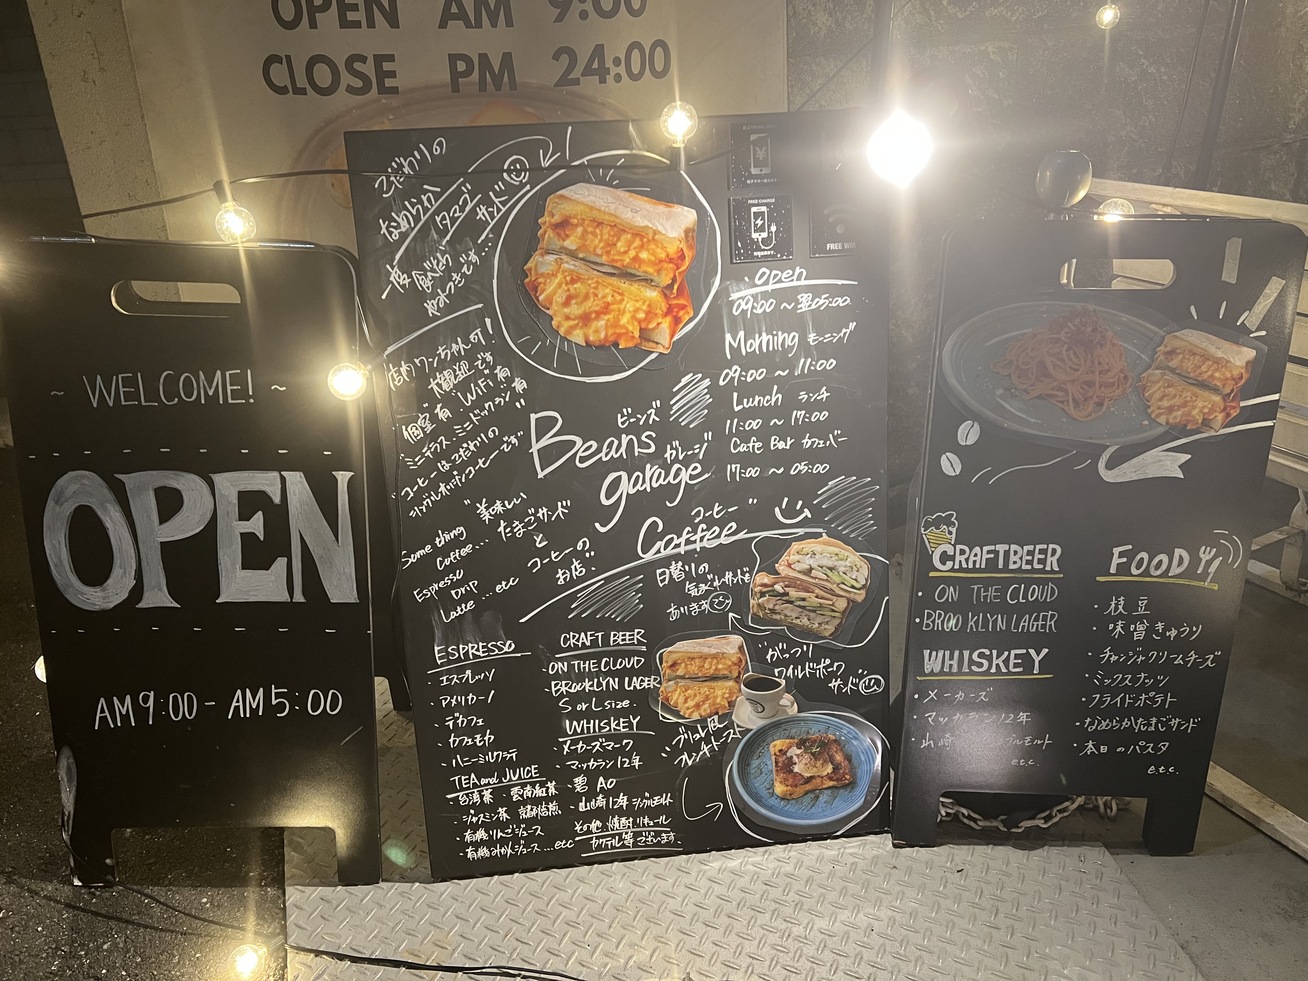 OPEN AM 9:00
CLOSE PM 24:00
~ WELCOME! ~
OPEN
AM 9:00 - AM 5:00
こだわりの
なめらか
タマゴ
サンド
一度食べたら
やみつきです…
店内ワンちゃん可!
大歓迎です
個室有 WiFi有
ミニテラス・ミニドッグラン有
"コーヒーはこだわりの
シングルオリジンコーヒーです"
Something
Coffee...
Espresso
Drip
Latte ...etc
"美味しい
たまごサンド"
と
コーヒーの
お店!
FREE CHARGE
FREE WiFi
Open
09:00 ~ 翌05:00
Morning モーニング
09:00 ~ 11:00
Lunch ランチ
11:00 ~ 17:00
Cafe Bar カフェバー
17:00 ~ 05:00
ビーンズ
Beans
ガレージ
garage
コーヒー
Coffee
日替りの
気まぐれサンドも
あります
がっつり
ワイルドポーク
サンド
ブリュレ風
フレンチトースト
ESPRESSO
・エスプレッソ
・アメリカーノ
・デカフェ
・カフェモカ
・ハニーミルクラテ
TEA and JUICE
・台湾茶・雲南紅茶
・ジャスミン茶
・有機りんごジュース
・有機みかんジュース...etc
CRAFT BEER
・ON THE CLOUD
・BROOKLYN LAGER
S or L size.
WHISKEY
・メーカーズマーク
・マッカラン12年
・碧 AO
・山崎12年 シングルモルト
その他、焼酎、リキュール
カクテル等ございます。
CRAFTBEER
・ON THE CLOUD
・BROOKLYN LAGER
WHISKEY
・メーカーズ
・マッカラン12年
・山崎 シングルモルト
etc.
FOOD
・枝豆
・味噌きゅうり
・チャンジャクリームチーズ
・ミックスナッツ
・フライドポテト
・なめらかたまごサンド
・本日のパスタ
etc.